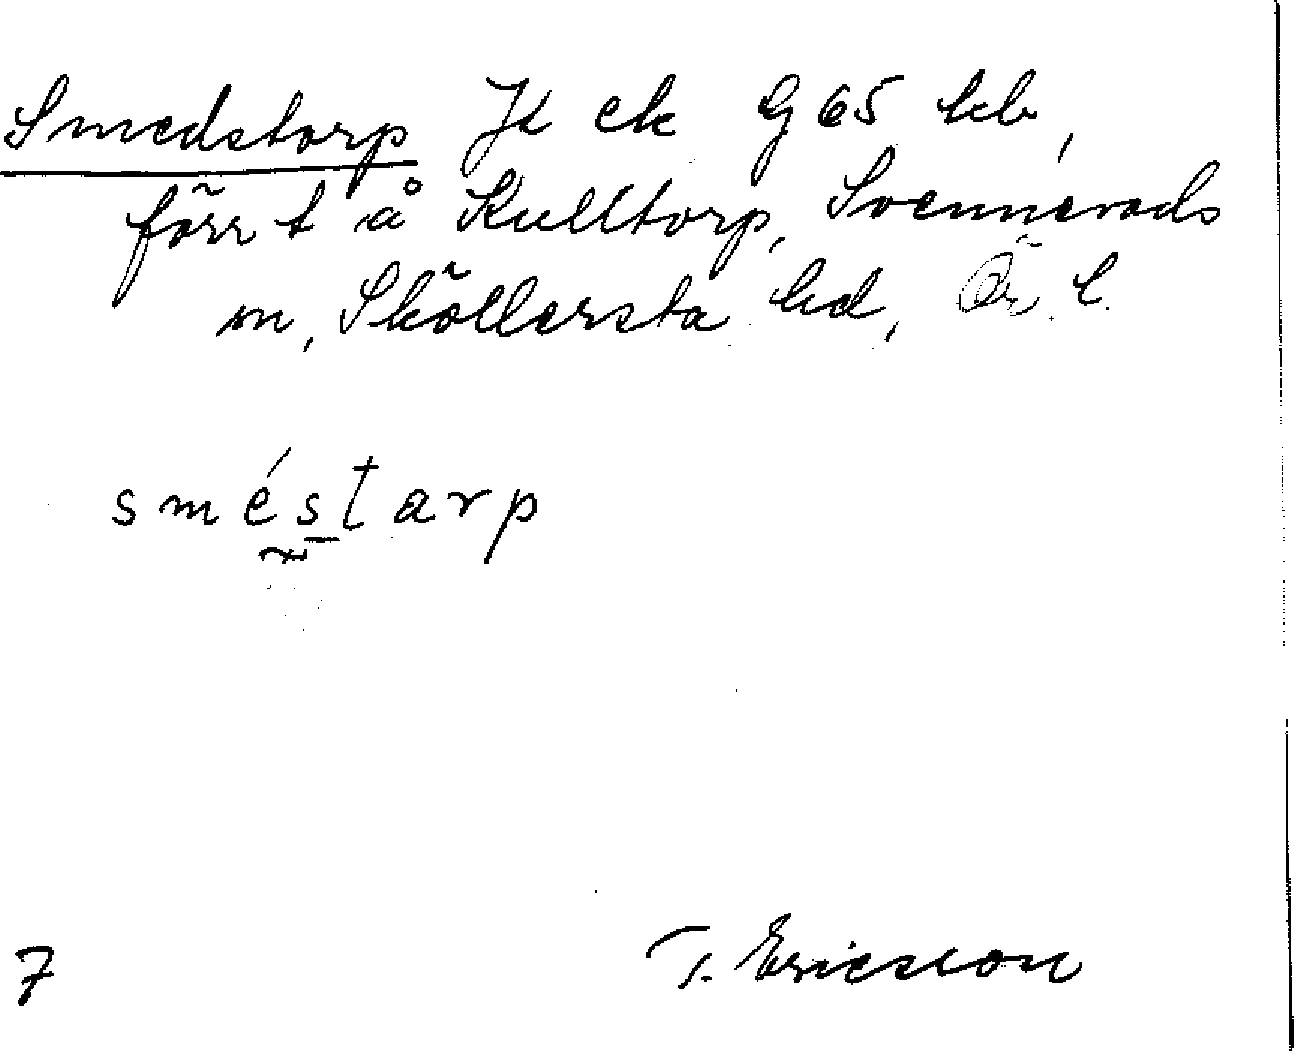 Smedstorp Jk ek G 65 lcb,
förr t å Kulltorp, Svennevads
m, Sköllersta hd, Ör. l.
sméstarp
7
T. Ericsson